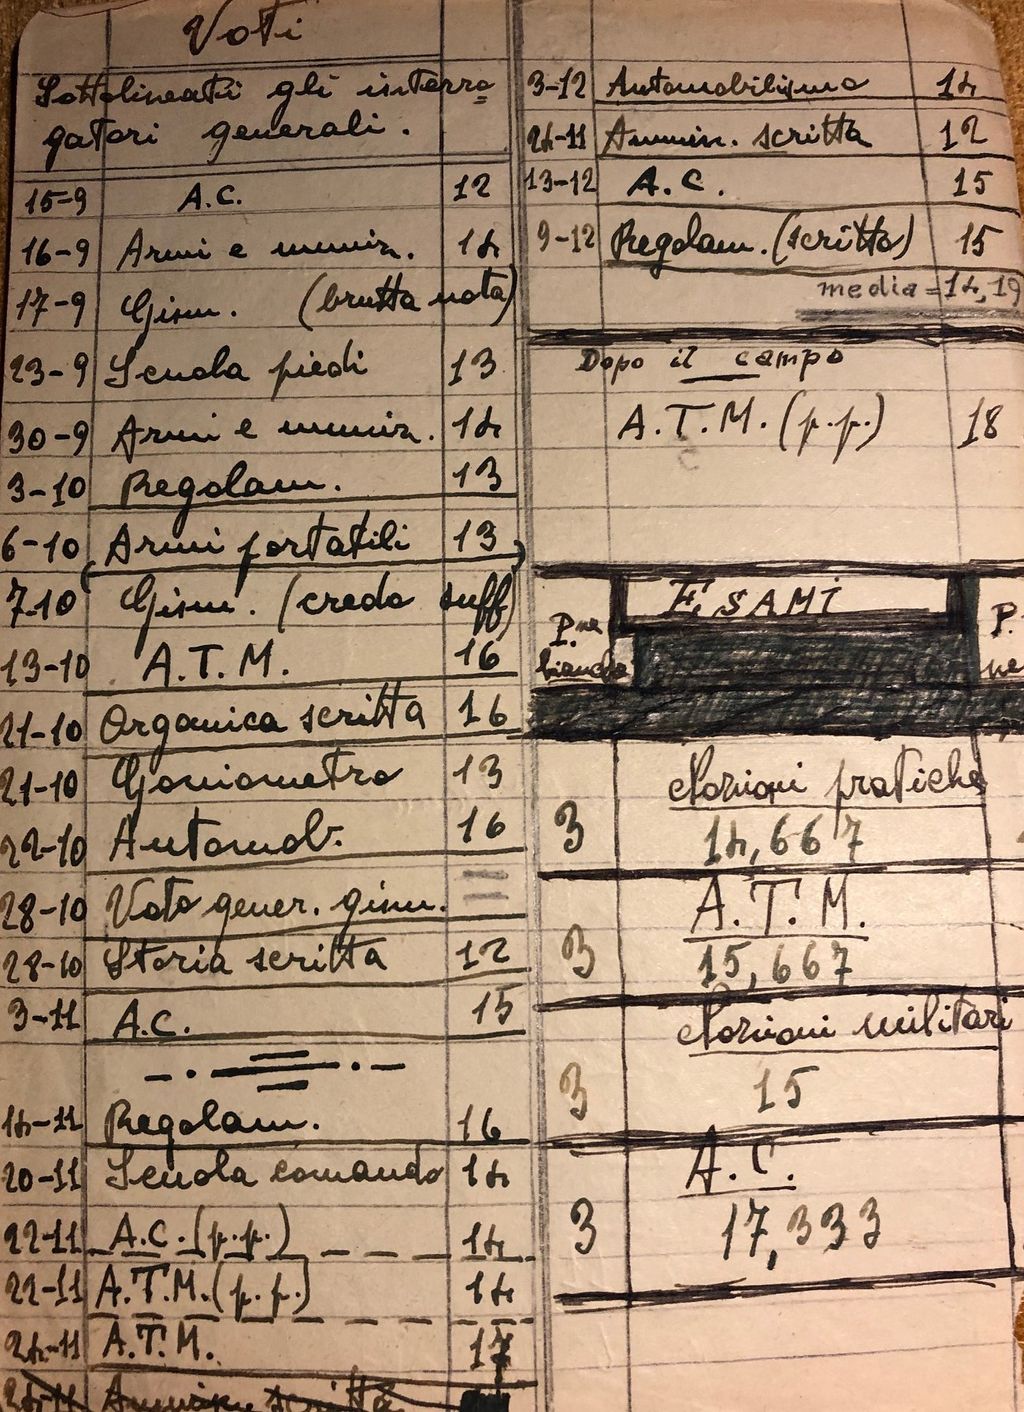 Voti
Sottolineati gli interro=
gatori generali.
15-9 A.C. 12
16-9 Armi e muniz. 14
17-9 Ginn. (brutta nota)
23-9 Scuola piedi 13
30-9 Armi e muniz. 14
3-10 Regolam. 13
6-10 Armi portatili 13
7-10 Ginn. (credo suff)
13-10 A.T.M. 16
21-10 Organica scritta 16
21-10 Goniometro 13
22-10 Automob. 16
28-10 Voto gener. ginn. =
28-10 Storia scritta 12
3-11 A.C. 15
14-11 Regolam. 16
20-11 Scuola comando 14
22-11 A.C. (p.p.) 14
22-11 A.T.M. (p.p.) 14
24-11 A.T.M. 17
24-11 Ammin. scritta
3-12 Automobilismo 14
24-11 Ammin. scritta 12
13-12 A.C. 15
9-12 Regolam. (scritto) 15
media = 14,19
Dopo il campo
A.T.M. (p.p.) 18
ESAMI
P.ne P.
bianche ne
Nozioni pratiche
3 14,667
A.T.M.
3 15,667
Nozioni militari
3 15
A.C.
3 17,333